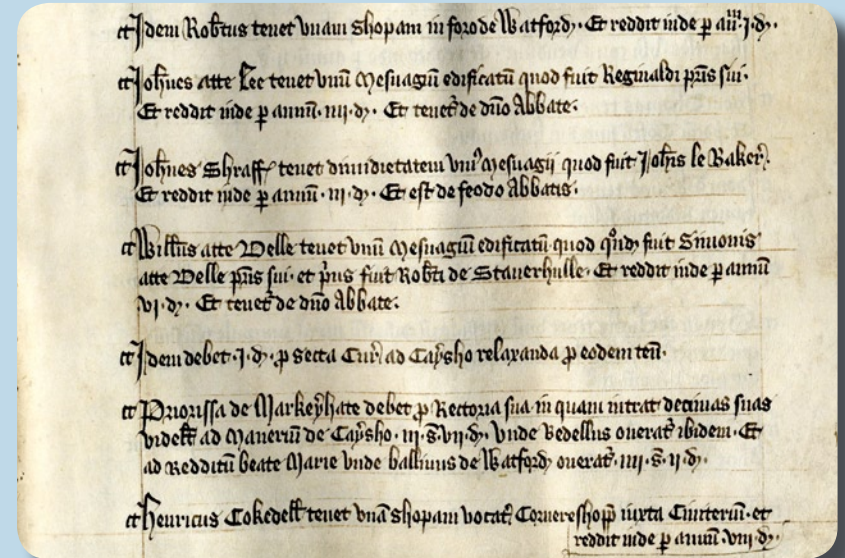 Idem Rob̃tus tenet vnam shopam in foro de Watford. Et reddit inde ꝑ ann̄. j. d̶.
Joh̃nes atte Lee tenet vnū Mesuagiū edificatū quod fuit Reginaldi pr̃is sui.
Et reddit inde ꝑ annū. iiij. d̶. Et tenet̃ de dn̄o Abbate.
Joh̃nes Shraff tenet dimidietatem vniꝰ Mesuagii quod fuit Joh̃is le Baker̃.
Et reddit inde ꝑ annū. iij. d̶. Et est de feodo Abbatis.
Will̃us atte Welle tenet vnū Mesuagiū edificatū quod qͦnd̶ fuit Simonis
atte Welle pr̃is sui. et pͥus fuit Rob̃ti de Stauerhulle. Et reddit inde ꝑ annū
vj. d̶. Et tenet̃ de dn̄o Abbate.
Idem debet. j. d̶. ꝓ secta Cur̃ ad Caẏsho relaxanda ꝓ eodem ten̄.
Priorissa de Markeẏhate debet ꝓ Rectoria sua in quam intrat decimas suas
videlt̃ ad Maneriū de Caẏsho. iij. s̃. vij. d̶. Vnde Bedellus onerat̃ ibidem. Et
ad Redditū beate Marie vnde balliuus de Watford onerat̃. iiij. s̃. ij. d̶.
Henricus Cokedell̃ tenet vnā shopam vocat̃ Cornereshopp̄ iuxta Cimiteriū. et
reddit inde ꝑ annū. viij. d̶.